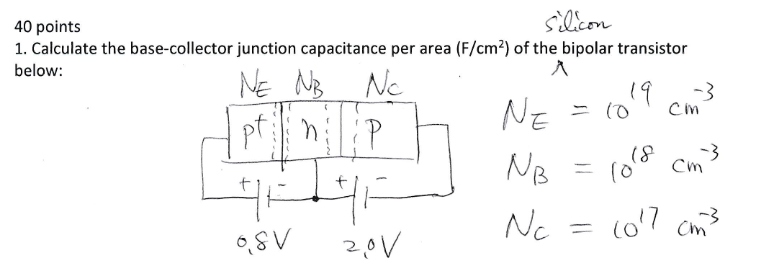 40 points
silicon
1. Calculate the base-collector junction capacitance per area (F/cm²) of the bipolar transistor
below:
NE NB Nc
p+ n p
NE = 10¹⁹ cm⁻³
NB = 10¹⁸ cm⁻³
Nc = 10¹⁷ cm⁻³
+ - + -
0,8V 2,0V